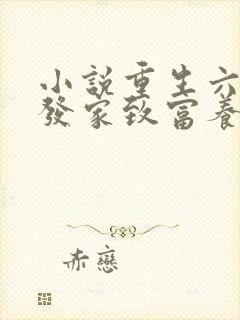 小説重生六
發家致富養
赤戀